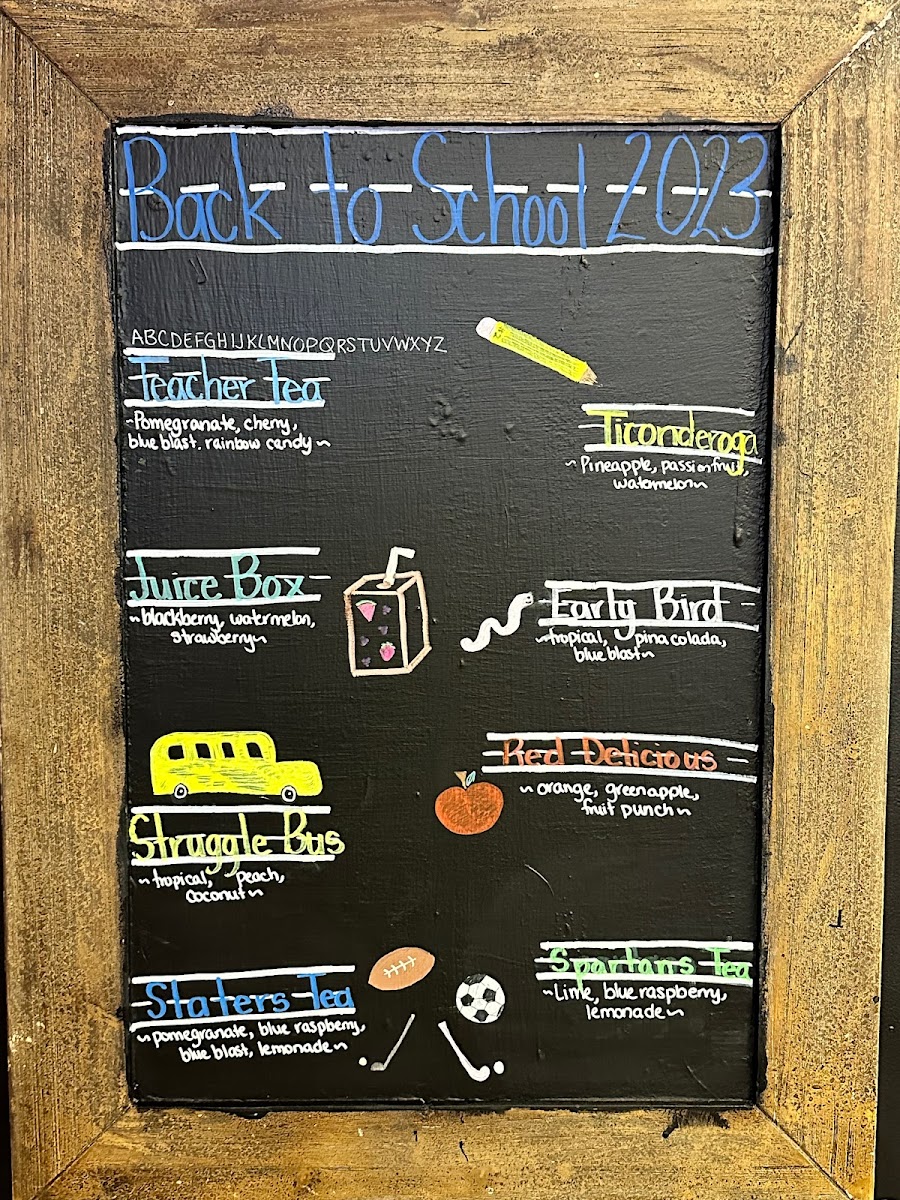 Back to School 2023
ABCDEFGHIJKLMNOPQRSTUVWXYZ
Teacher Tea
~Pomegranate, cherry,
blue blast, rainbow candy~
Ticonderoga
~Pineapple, passionfruit,
watermelon~
Juice Box
~blackberry, watermelon,
strawberry~
Early Bird
~tropical, pina colada,
blue blast~
Struggle Bus
~tropical, peach,
coconut~
Red Delicious
~orange, green apple,
fruit punch~
Slaters Tea
~pomegranate, blue raspberry,
blue blast, lemonade~
Spartans Tea
~Lime, blue raspberry,
lemonade~